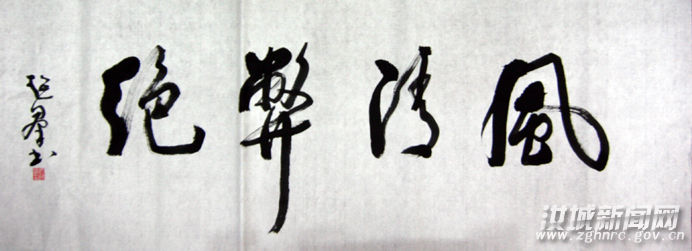 風清弊绝
超群书
洪城新闻网
www.zghnrc.gov.cn